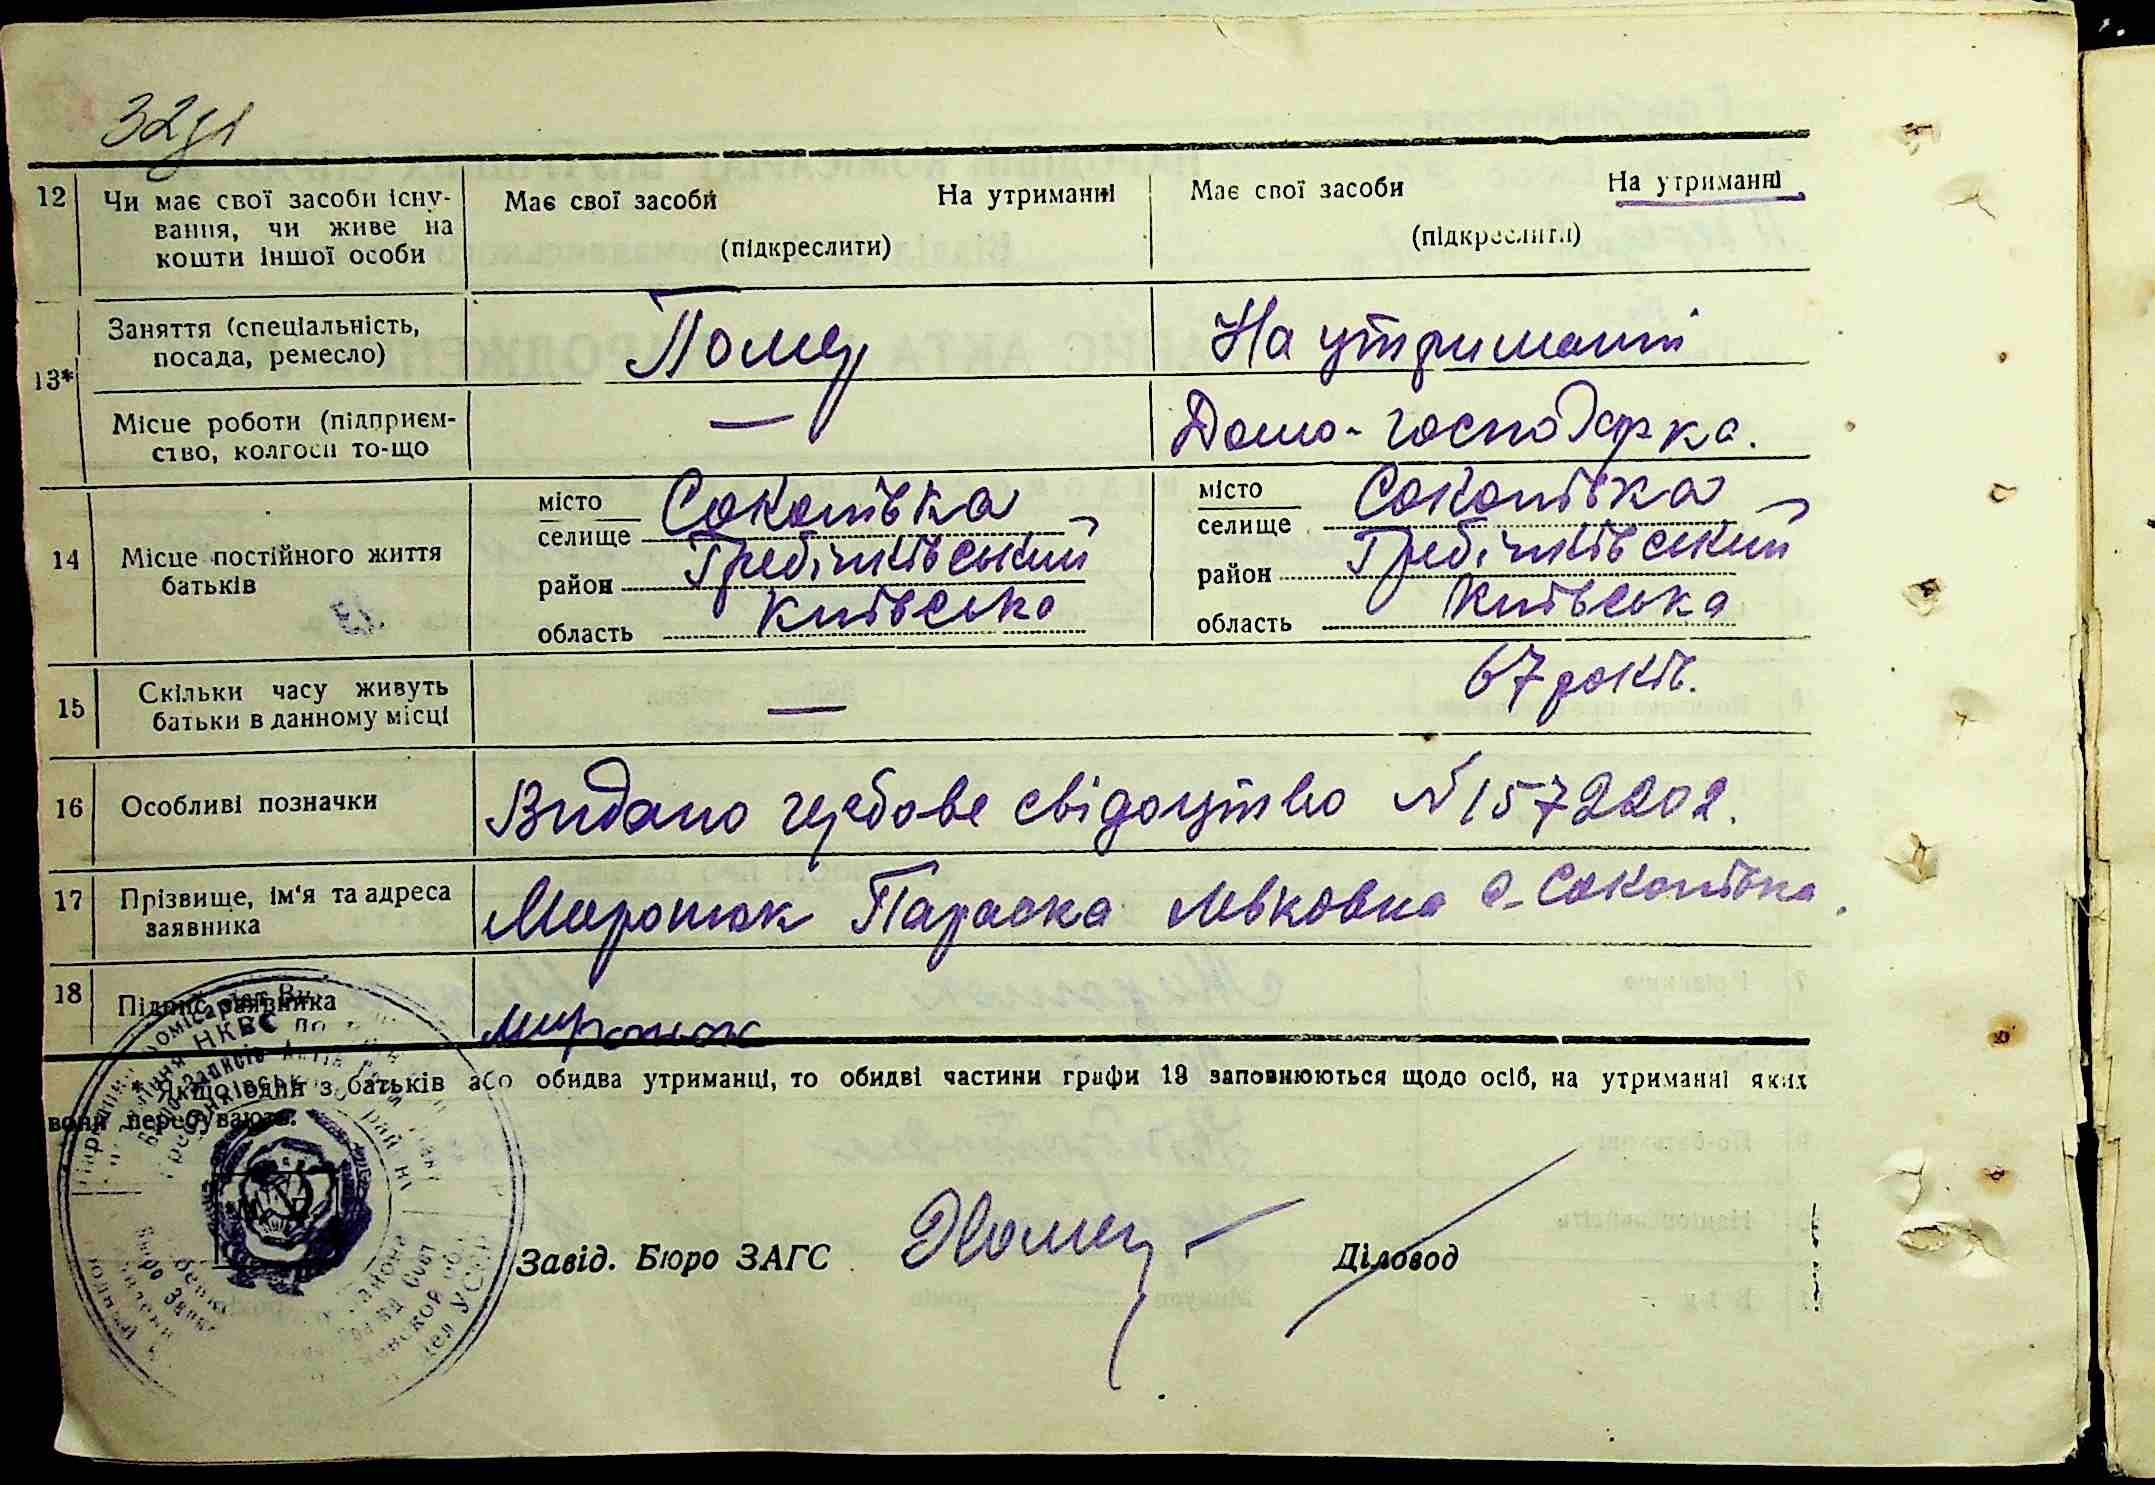 12 Чи має свої засоби існу-
вання, чи живе на
кошти іншої особи
Має свої засоби На утриманні
(підкреслити)
Має свої засоби На утриманні
(підкреслити)
13*
Заняття (спеціальність,
посада, ремесло)
Помер
На утриманні
Місце роботи (підприєм-
ство, колгосп то-що
—
Домо-господарка.
14 Місце постійного життя
батьків
місто
селище Соколівка
район Гребінківський
область Київська
місто
селище Соколівка
район Гребінківський
область Київська
15 Скільки часу живуть
батьки в данному місці
—
67 років.
16 Особливі позначки
Видано гербове свідоцтво № 1572202.
17 Прізвище, ім'я та адреса
заявника
Миронюк Параска Левковна с. Соколівка.
18 Підпис заявника
Миронюк
* Якщо один з батьків або обидва утриманці, то обидві частини графи 13 заповнюються щодо осіб, на утриманні яких
вони перебувають.
Завід. Бюро ЗАГС
Діловод